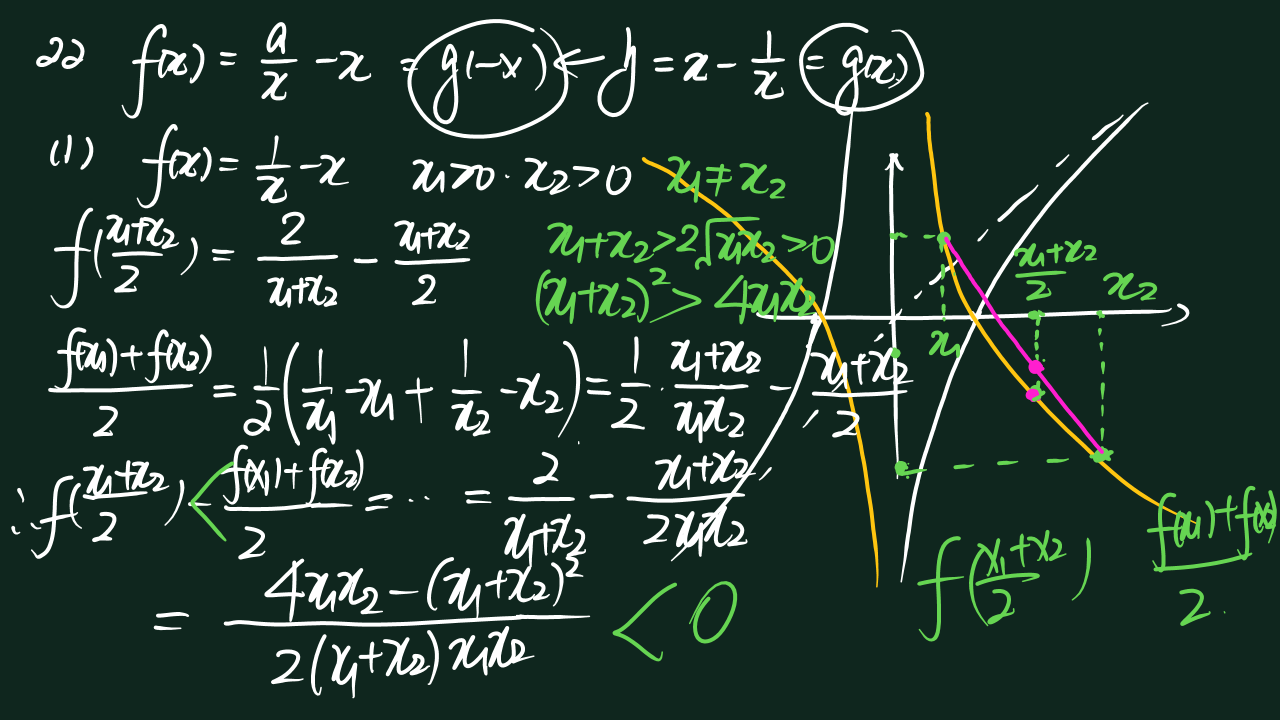 22 f(x) = a/x - x = g(-x) ← y = x - 1/x = g(x)
(1) f(x) = 1/x - x x₁>0 · x₂>0 x₁≠x₂
f((x₁+x₂)/2) = 2/(x₁+x₂) - (x₁+x₂)/2
x₁+x₂>2√(x₁x₂)>0
(x₁+x₂)²>4x₁x₂
(x₁+x₂)/2 x₂
x₁
(f(x₁)+f(x₂))/2 = 1/2(1/x₁-x₁+1/x₂-x₂) = 1/2·(x₁+x₂)/(x₁x₂) - (x₁+x₂)/2
∴ f((x₁+x₂)/2) - < (f(x₁)+f(x₂))/2 = ··· = 2/(x₁+x₂) - (x₁+x₂)/(2x₁x₂)
= (4x₁x₂-(x₁+x₂)²)/(2(x₁+x₂)x₁x₂) < 0
f((x₁+x₂)/2) (f(x₁)+f(x₂))/2